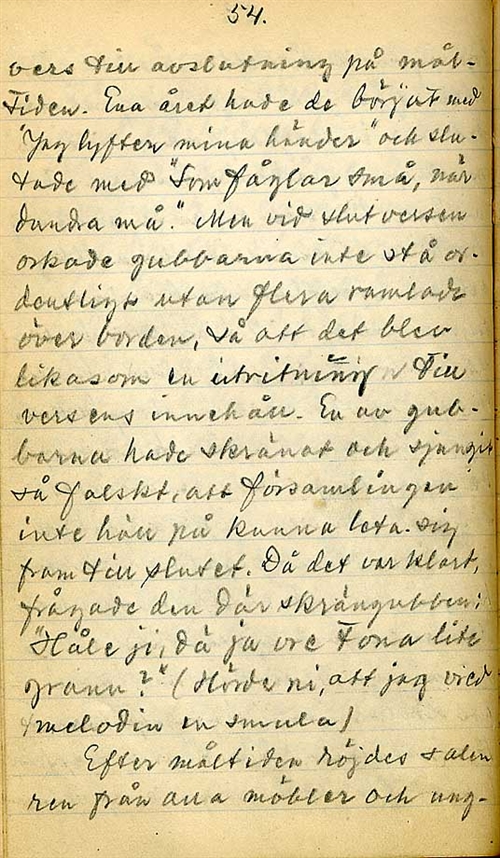 54.
vers till avslutning på mål-
tiden. Ena året hade de börjat med
"Jag lyfter mina händer" och slu-
tade med "Som fåglar små, när
dundra må." Men vid slutversen
orkade gubbarna inte stå or-
dentligt utan flera ramlade
över borden, så att det blev
likasom en utritning till
versens innehåll. En av gub-
barna hade skränat och sjungit
så falskt, att församlingen
inte höll på kunna leta sig
fram till slutet. Då det var klart,
frågade den där skrängubben:
"Håle ji, dä ja vre tona lite
grann?" (Hörde ni, att jag vred
melodin en smula)
Efter måltiden röjdes salen
ren från alla möbler och ung-